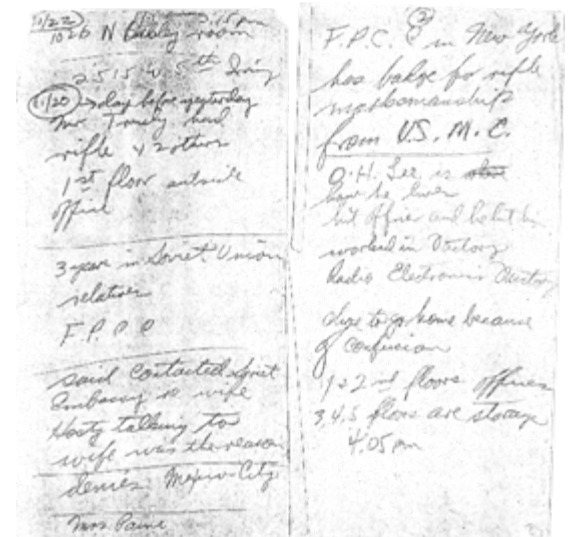 11/22 3.15 pm
1026 N Beckley room
2515 W 5th Irving
11/20 day before yesterday
Mr. Truly had
rifle & 2 others
1st floor outside
office
3 years in Soviet Union
relatives
F.P.C.C
said contacted Soviet
Embassy re wife
Hosty talking to
wife was the reason
denies Mexico City
Mrs Paine
F.P.C. in New York
has badge for rifle
marksmanship
from U.S.M.C.
O.H. Lee is
how he lives
hit officer and he hit him
worked in
Radio Electronics
to go home because
of confusion
1 & 2nd floors offices
3,4,5 floors are storage
4.05 pm